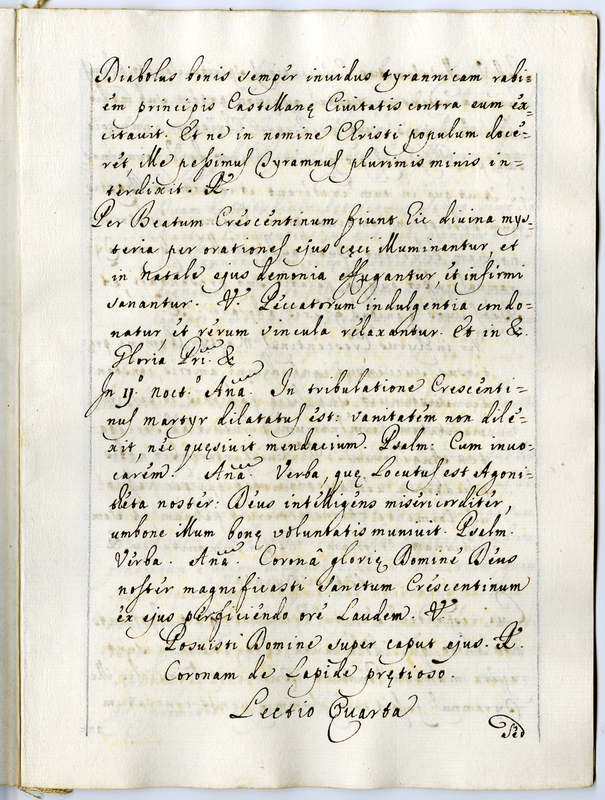 Diabolus bonis semper inuidus tyrannicam rabi=
em principis Castellanę Ciuitatis contra eum ex=
citauit. Et ne in nomine Christi populum doce=
ret, ille pessimus Tyramnus plurimis minis in=
terdixit. ℟.
Per Beatum Crescentinum fiunt hic diuina mys=
teria per orationes ejus cęci illuminantur, et
in Natale ejus demonia effugantur, et infirmi
sanantur. ℣. Peccatorum indulgentia condo=
natur, et rerum vincula relaxantur. Et in &.
Gloria Pri. &
In ij.º noct.º Aña. In tribulatione Crescenti=
nus martyr dilatatus est: vanitatem non dile=
xit, nec quęsiuit mendacium. Psalm. Cum inuo=
carem. Aña. Verba, quę Locutus est Agoni=
theta noster: Deus intelligens misericorditer,
umbone illum bonę voluntatis muniuit. Psalm.
Verba. Aña. Coronâ glorię Domine Deus
noster magnificasti Sanctum Crescentinum
ex ejus perficiendo ore Laudem. ℣.
Posuisti Domine super caput ejus. ℟.
Coronam de Lapide pretioso.
Lectio Quarta